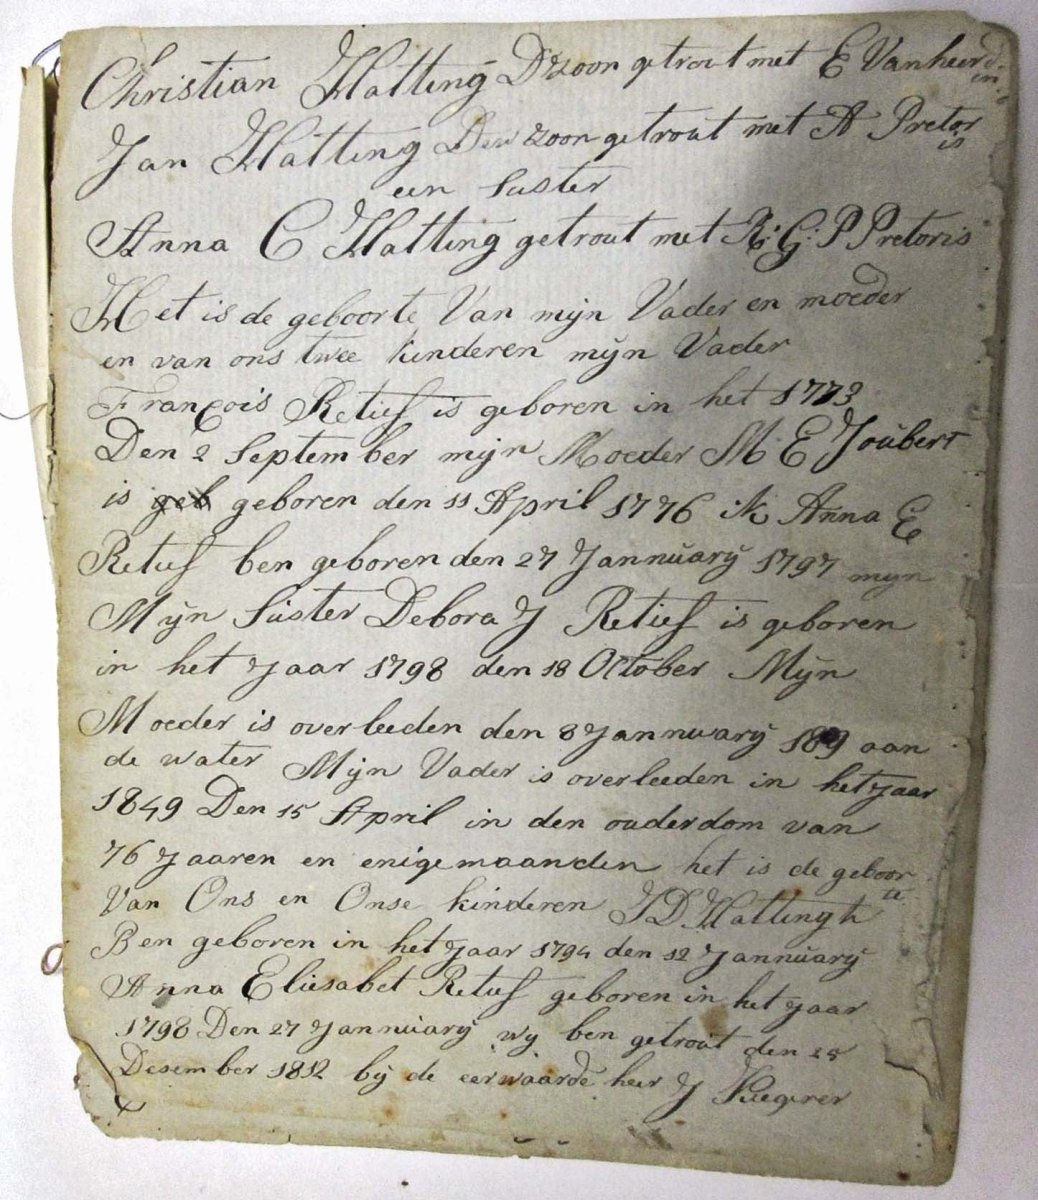 Christian Hatting Dzoon getrout met E Vanheerden
Jan Hatting Den zoon getrout met A Pretoris
een suster
Anna C Hatting getrout met R: G: P Pretoris
Het is de geboorte Van mijn Vader en moeder
en van ons twee kinderen mijn Vader
François Retief is geboren in het 1773
Den 2 September mijn Moeder M E Joubert
is geb geboren den 11 April 1776 ik Anna E
Retief ben geboren den 27 Jannuarÿ 1797 mijn
Mijn suster Debora J Retief is geboren
in het Jaar 1798 den 18 October Mijn
Moeder is overleeden den 8 Jannuarÿ aan
de water Mijn Vader is overleeden in het Jaar
1849 Den 15 April in den ouderdom van
76 Jaaren en enige maanden het is de geboorte
Van Ons en Onse kinderen J D Hattingh
Ben geboren in het Jaar 1794 den 12 Jannuarÿ
Anna Eliesabet Retief geboren in het Jaar
1798 Den 27 Jannuarÿ wy ben getrout den 25
Desember 1812 bÿ de eerwaarde heer J